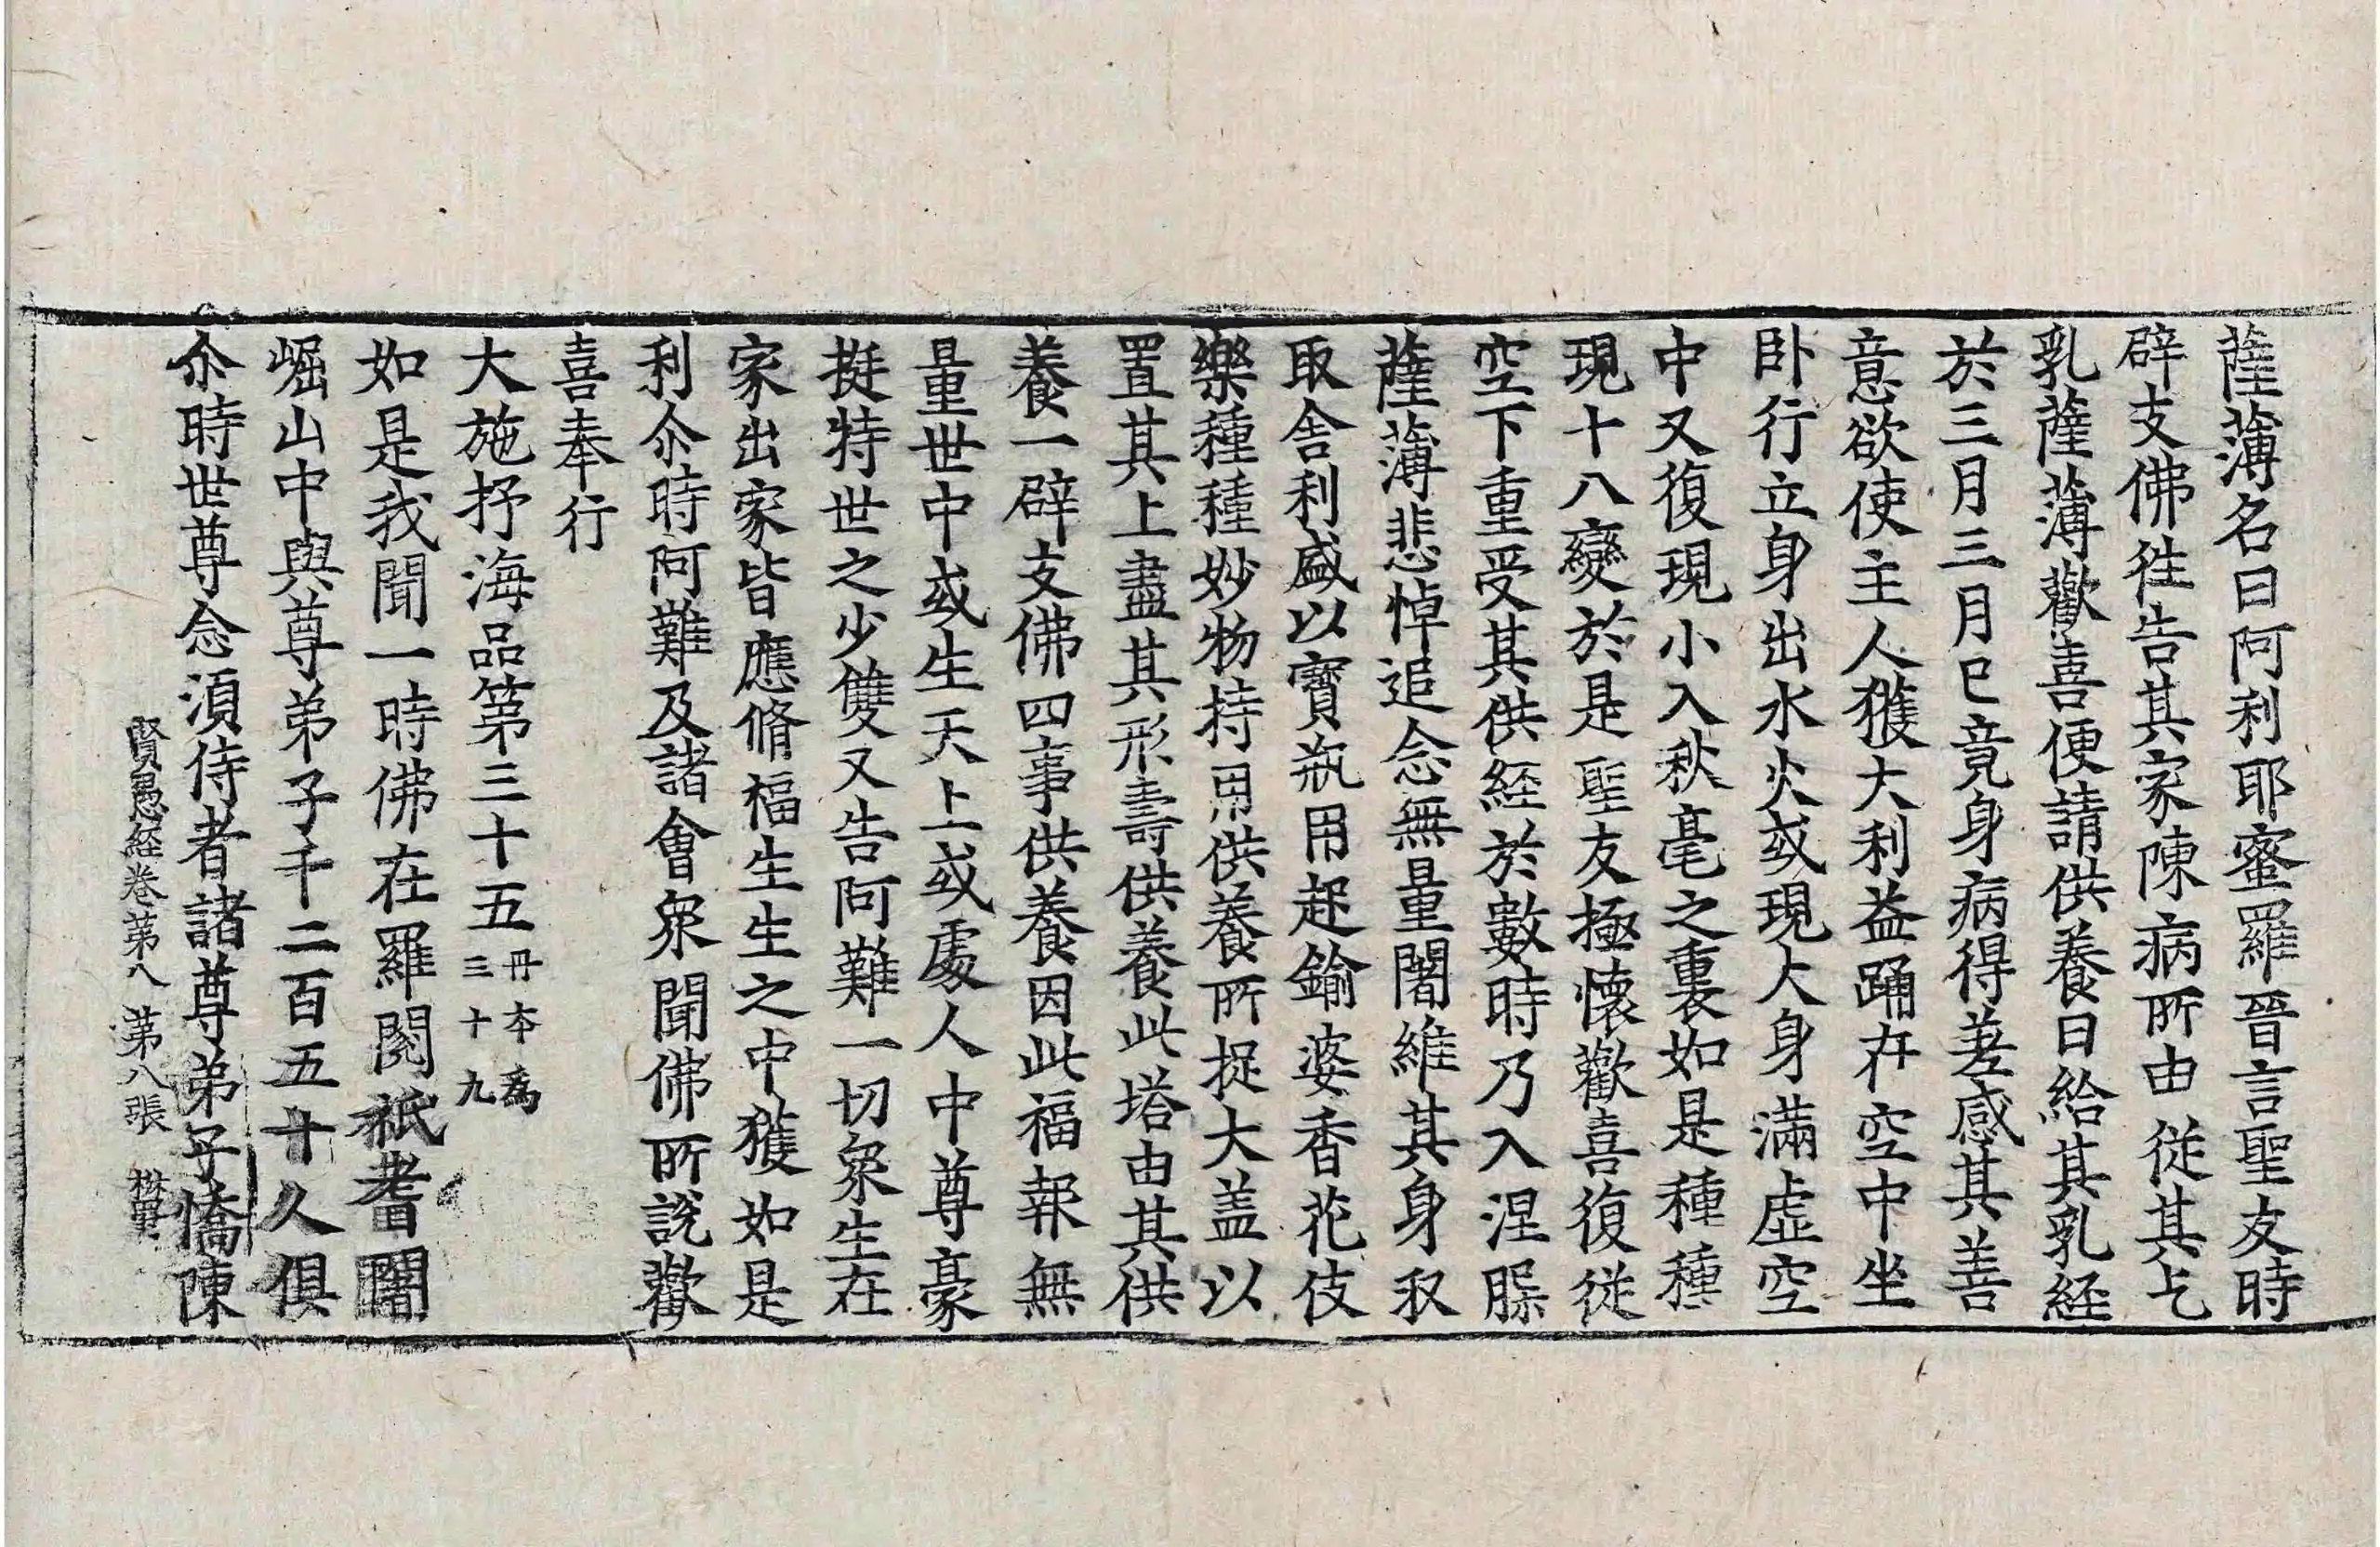 薩薄名曰阿利耶蜜羅晉言聖友時
辟支佛徃告其家陳病所由從其乞
乳薩薄歡喜便請供養日給其乳経
於三月三月已竟身病得差感其善
意欲使主人獲大利益踊在空中坐
卧行立身出水火或現大身滿虛空
中又復現小入秋毫之裏如是種種
現十八變於是聖友極懷歡喜復從
空下重受其供経於數時乃入涅槃
薩薄悲悼追念無量闍維其身収
取舍利盛以寶瓶用起鍮婆香花伎
樂種種妙物持用供養所捉大盖以
置其上盡其形壽供養此塔由其供
養一辟支佛四事供養因此福報無
量世中或生天上或處人中尊豪
挺特世之少雙又告阿難一切衆生在
家出家皆應脩福生生之中獲如是
利尒時阿難及諸會衆聞佛所說歡
喜奉行
大施抒海品第三十五丹本為三十九
如是我聞一時佛在羅閱祇耆闍
崛山中與尊弟子千二百五十人俱
尒時世尊念湏侍者諸尊弟子憍陳
賢愚経卷第八 第八張